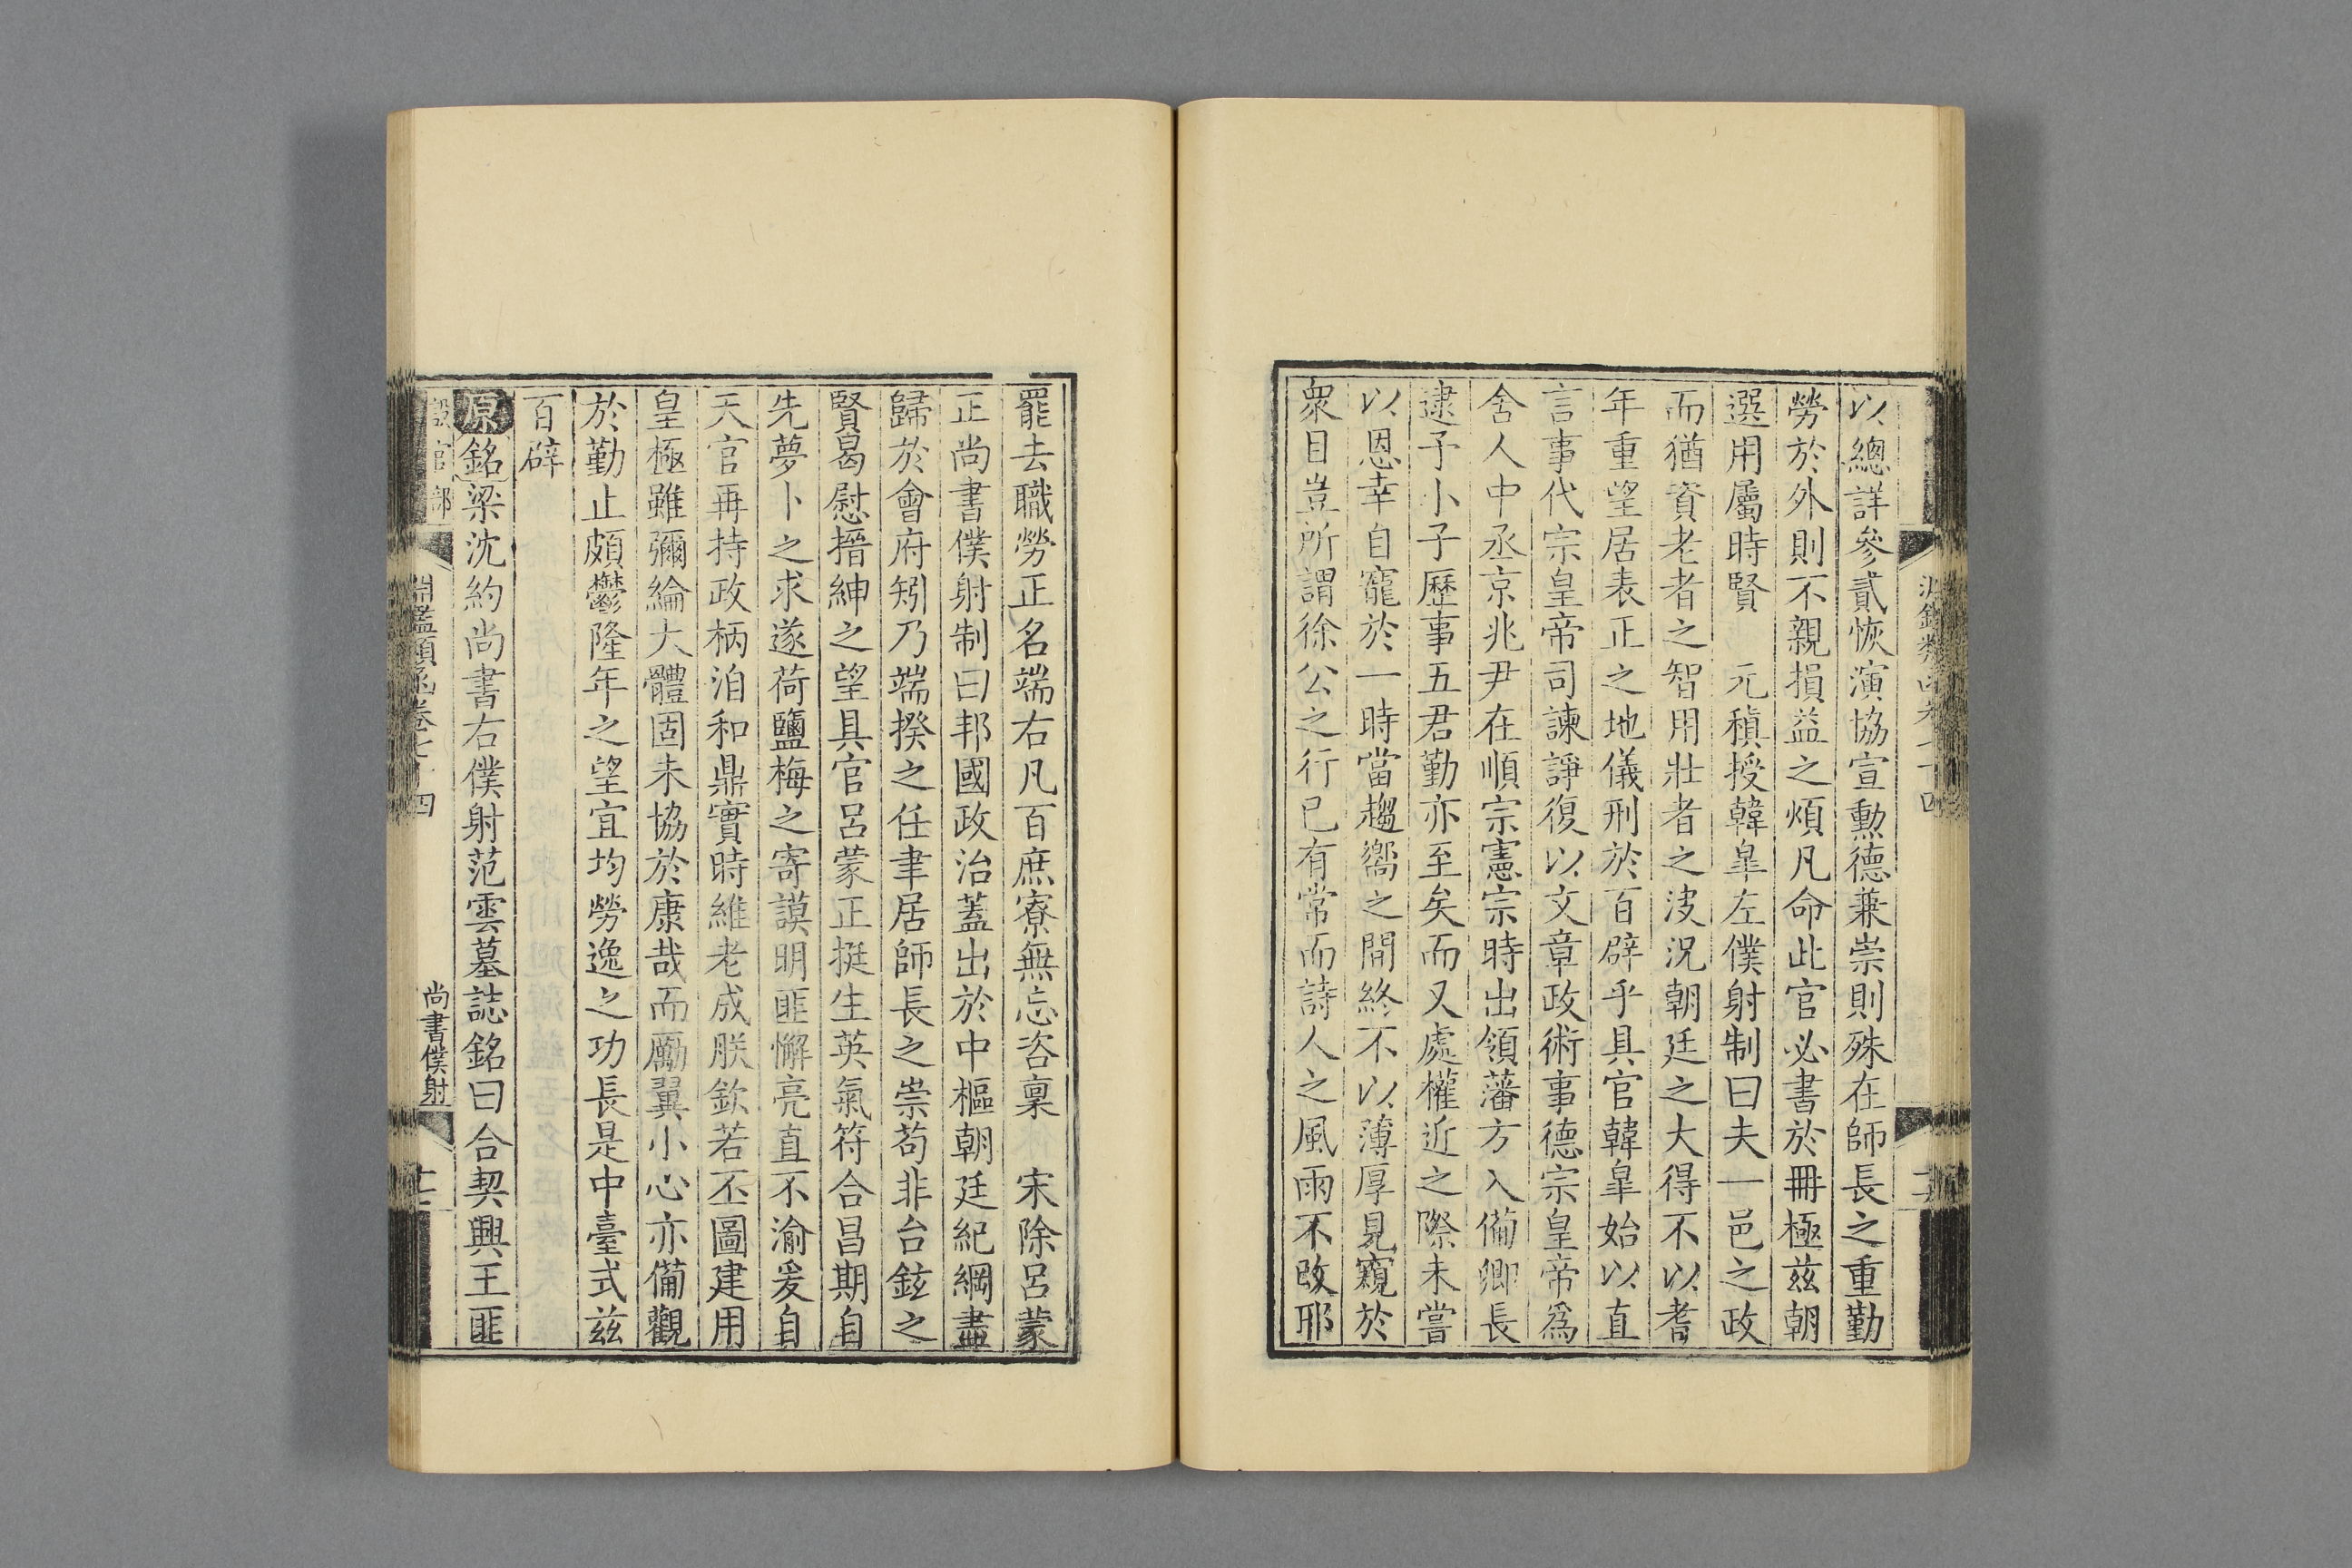 以總詳參貳恢演協宣勳德兼崇則殊在師長之重勤
勞於外則不親損益之煩凡命此官必書於冊極茲朝
選用屬時賢　元稹授韓皐左僕射制曰夫一邑之政
而猶資老者之智用壯者之決況朝廷之大得不以耆
年重望居表正之地儀刑於百辟乎具官韓皐始以直
言事代宗皇帝司諫諍復以文章政術事德宗皇帝爲
舍人中丞京兆尹在順宗憲宗時出領藩方入備卿長
逮予小子歷事五君勤亦至矣而又處權近之際未嘗
以恩幸自寵於一時當趨嚮之間終不以薄厚見窺於
衆目豈所謂徐公之行已有常而詩人之風雨不改耶
罷去職勞正名端右凡百庶寮無忘咨稟　宋除呂蒙
正尚書僕射制曰邦國政治蓋出於中樞朝廷紀綱盡
歸於會府矧乃端揆之任聿居師長之崇苟非台鉉之
賢曷慰搢紳之望具官呂蒙正挺生英氣符合昌期自
先夢卜之求遂荷鹽梅之寄謨明匪懈亮直不渝爰自
天官再持政柄洎和鼎實時維老成朕欽若丕圖建用
皇極雖彌綸大體固未協於康哉而勵翼小心亦備觀
於勤止頗鬱隆年之望宜均勞逸之功長是中臺式茲
百辟
原銘梁沈約尚書右僕射范雲墓誌銘曰合契興王匪
設官部
淵鑑類函卷七十四
尚書僕射